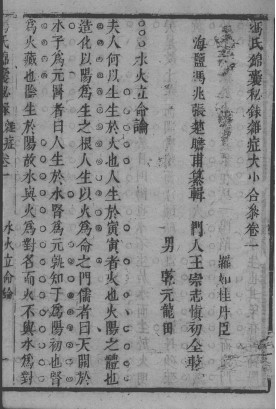 馮氏錦囊秘錄雜症大小合參卷一
羅如桂丹臣
海鹽馮兆張楚瞻甫纂輯 門人王崇志慎初全較
男 乾元龍田
水火立命論
夫人何以生生於火也人生於寅寅者火也火陽之體也
造化以陽為生之根人生以火為命之門儒者曰天開於
水子為元醫者曰人生於水腎為元孰知子為陽初也腎
為火藏也陰生於陽故水與火為對名而火不與水為對
馮氏錦囊秘錄 雜症卷一 水火立命論 一